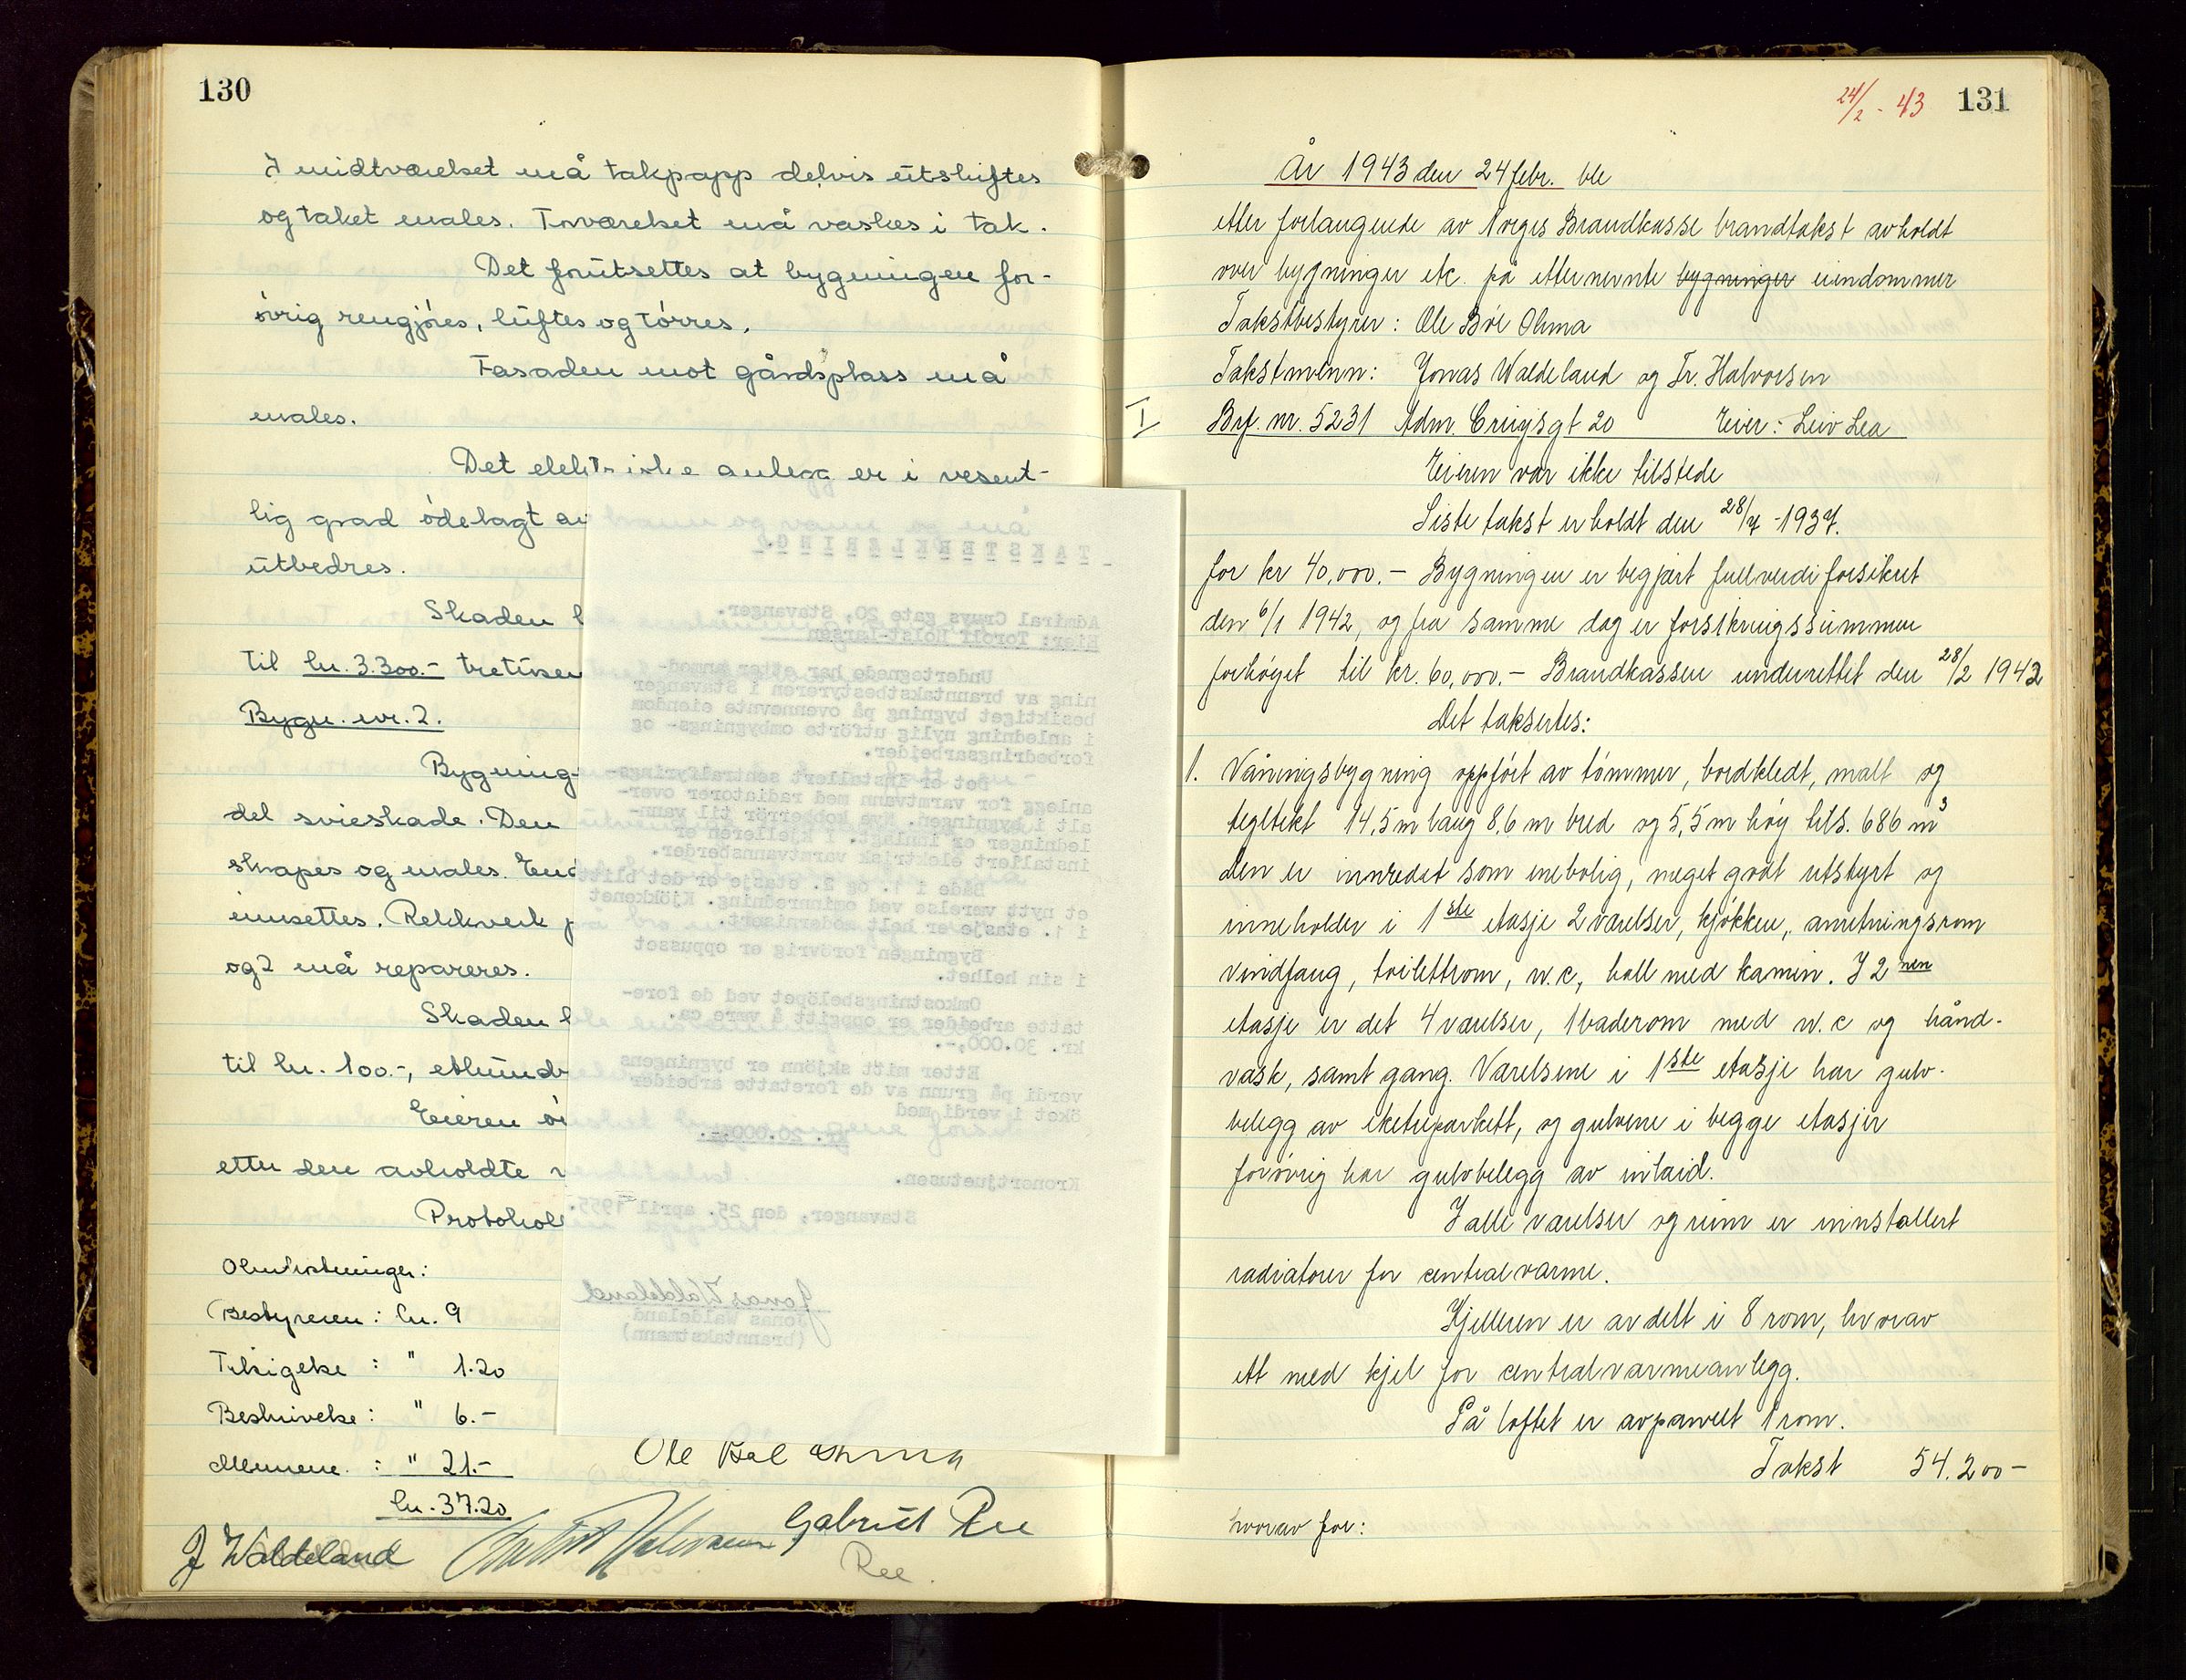 130
I midtværelset må takpapp delvis utskiftes
og taket males. Toværelset må vaskes i tak.
Det forutsettes at bygningen for-
øvrig rengjøres, luftes og tørres.
Fasaden mot gårdsplass må
males.
Det elektriske anlegg er i vesent-
lig grad ødelagt av
utbedres.
Skaden b
til kr. 3.300.- tretusen
Bygn. nr. 2.
Bygning-
del svieskade. Den
skrapes og males.
innsettes. Rekkverk p
og 2 må repareres.
Skaden b
til kr. 100.-, etthundr
Eieren ø
etter den avholdte
Protokol
Omkostninger:
Bestyreren: kr. 9
Tilsigelse : " 1.20
Beskrivelse : " 6.-
Mennene : " 21.-
kr. 37.20
Ole Bøe Ohma
J Waldeland
Gabriel Ree
Ree.
TAKSTERKLÆRING.
Admiral Cruys gate 20, Stavanger.
Eier: Torolf Holst-Larsen
Undertegnede har etter anmod-
ning av branntakstbestyreren i Stavanger
besiktiget bygning på ovennevnte eiendom
i anledning nylig utførte ombygnings- og
forbedringsarbeider.
Det er installert sentralfyrings-
anlegg for varmtvann med radiatorer over-
alt i bygningen. Nye kobberrör til vann-
ledninger er innlagt. I kjelleren er
installert elektrisk varmtvannsbereder.
Både i 1. og 2. etasje er det blitt
et nytt værelse ved ominnredning. Kjökkenet
i 1. etasje er helt modernisert.
Bygningen forövrig er oppusset
i sin helhet.
Omkostningsbelöpet ved de fore-
tatte arbeider er oppgitt å være ca.
kr. 30.000,-.
Etter mitt skjönn er bygningens
verdi på grunn av de foretatte arbeider
öket i verdi med
kr. 20.000,-.
Kronertjuetusen.
Stavanger, den 25. april 1955.
Jonas Waldeland
Jonas Waldeland
(branntakstmann)
24/2 - 43 131
År 1943 den 24 febr. ble
etter forlangende av Norges Brandkasse brandtakst avholdt
over bygninger etc. på etternevnte bygninger eiendommer
Takstbestyrer: Ole Bøe Ohma
Takstmenn: Jonas Waldeland og Fr. Halvorsen
I Brf. nr. 5231 Adm. Cruysgt 20 Eier: Leiv Lea
Eieren var ikke tilstede
Siste takst er holdt den 28/7 - 1937.
for kr 40,000.- Bygningen er begjært fullverdiforsikret
den 6/1 1942, og fra samme dag er forsikringssummen
forhøyet til kr. 60,000.- Brandkassen underrettet den 28/2 1942
Det takseres:
1. Våningsbygning oppført av tømmer, bordkledt, malt og
tegltekt 14,5 m lang 8,6 m bred og 5,5 m høy tils. 686 m³
den er innredet som enebolig, meget godt utstyrt og
inneholder i 1ste etasje 2 værelser, kjøkken, anretningsrom
vindfang, toilettrom, w.c, hall med kamin. I 2nen
etasje er det 4 værelser, 1 baderom med w.c og hånd-
vask, samt gang. Værelsene i 1ste etasje har gulv-
belegg av eketreparkett, og gulvene i begge etasjer
forøvrig har gulvbelegg av inlaid.
I alle værelser og rum er innstallert
radiatorer for centralvarme.
Kjelleren er avdelt i 8 rom, hvorav
et med kjel for centralvarmeanlegg.
På loftet er avpanelt 1 rom.
Takst 54.200-
hvorav for: